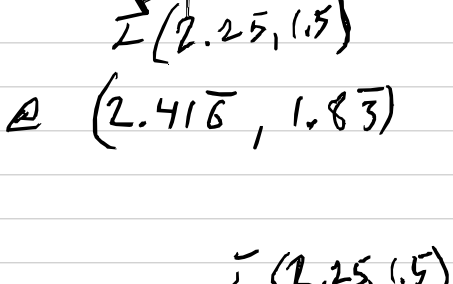 I (2.25, 1.5)
(2.416̅, 1.83̅)
I (2.25, 1.5)